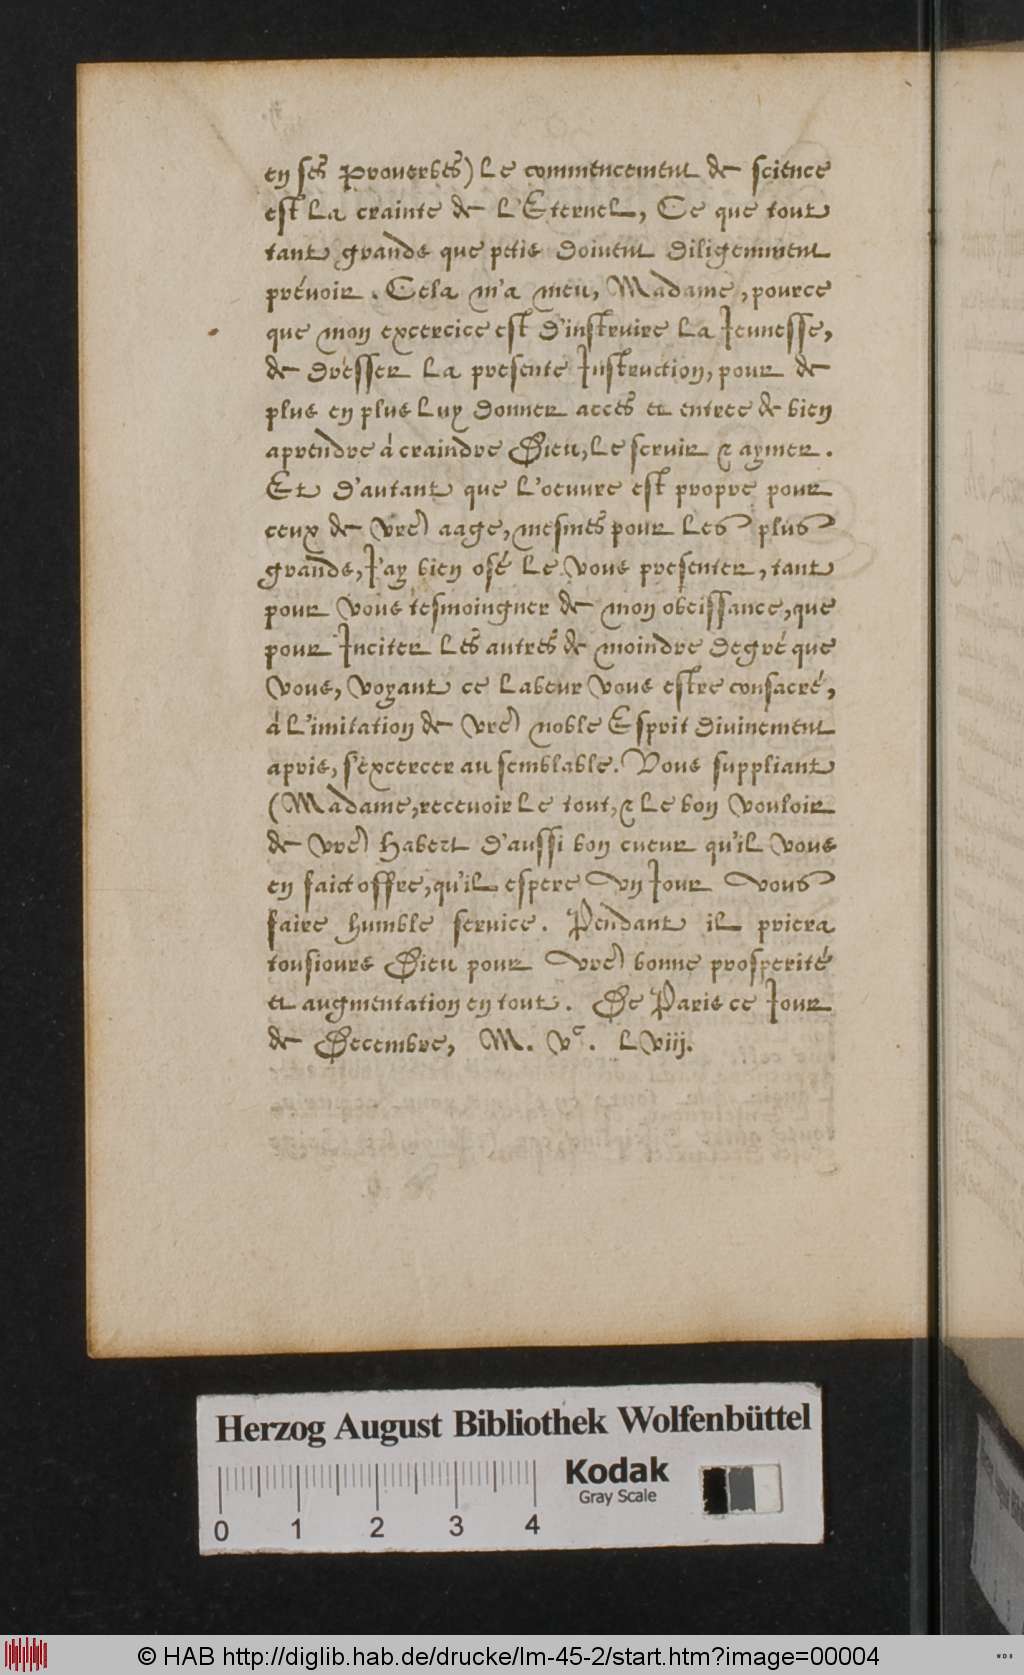 en ses Prouerbes) Le commencement de science
est La crainte de L'Eternel, Ce que tout
tant grands que petis doiuent diligemment
préuoir. Cela m'a meu, Madame, pource
que mon excercice est d'instruire La Jeunesse,
de drésser La presente Instruction, pour de
plus en plus Luy donner acces et entree de bien
aprendre à craindre Dieu, Le seruir & aymer.
Et d'autant que L'oeuure est propre pour
ceux de vre aage, mesmes pour Les plus
grands, J'ay bien osé Le vous presenter, tant
pour vous tesmoingner de mon obeissance, que
pour Inciter Les autres de moindre degré que
vous, voyant ce Labeur vous estre consacré,
à L'imitation de vre noble Esprit diuinement
apris, s'excercer au semblable. Vous suppliant
(Madame, receuoir Le tout, & Le bon vouloir
de vre Habert d'aussi bon cueur qu'il vous
en faict offre, qu'il espere vn Jour vous
faire humble seruice. Pendant il priera
tousiours Dieu pour vre bonne prosperité
et augmentation en tout. De Paris ce Jour
de Decembre, M. vc. Lviij.
Herzog August Bibliothek Wolfenbüttel
Kodak
Gray Scale
0 1 2 3 4
© HAB http://diglib.hab.de/drucke/lm-45-2/start.htm?image=00004